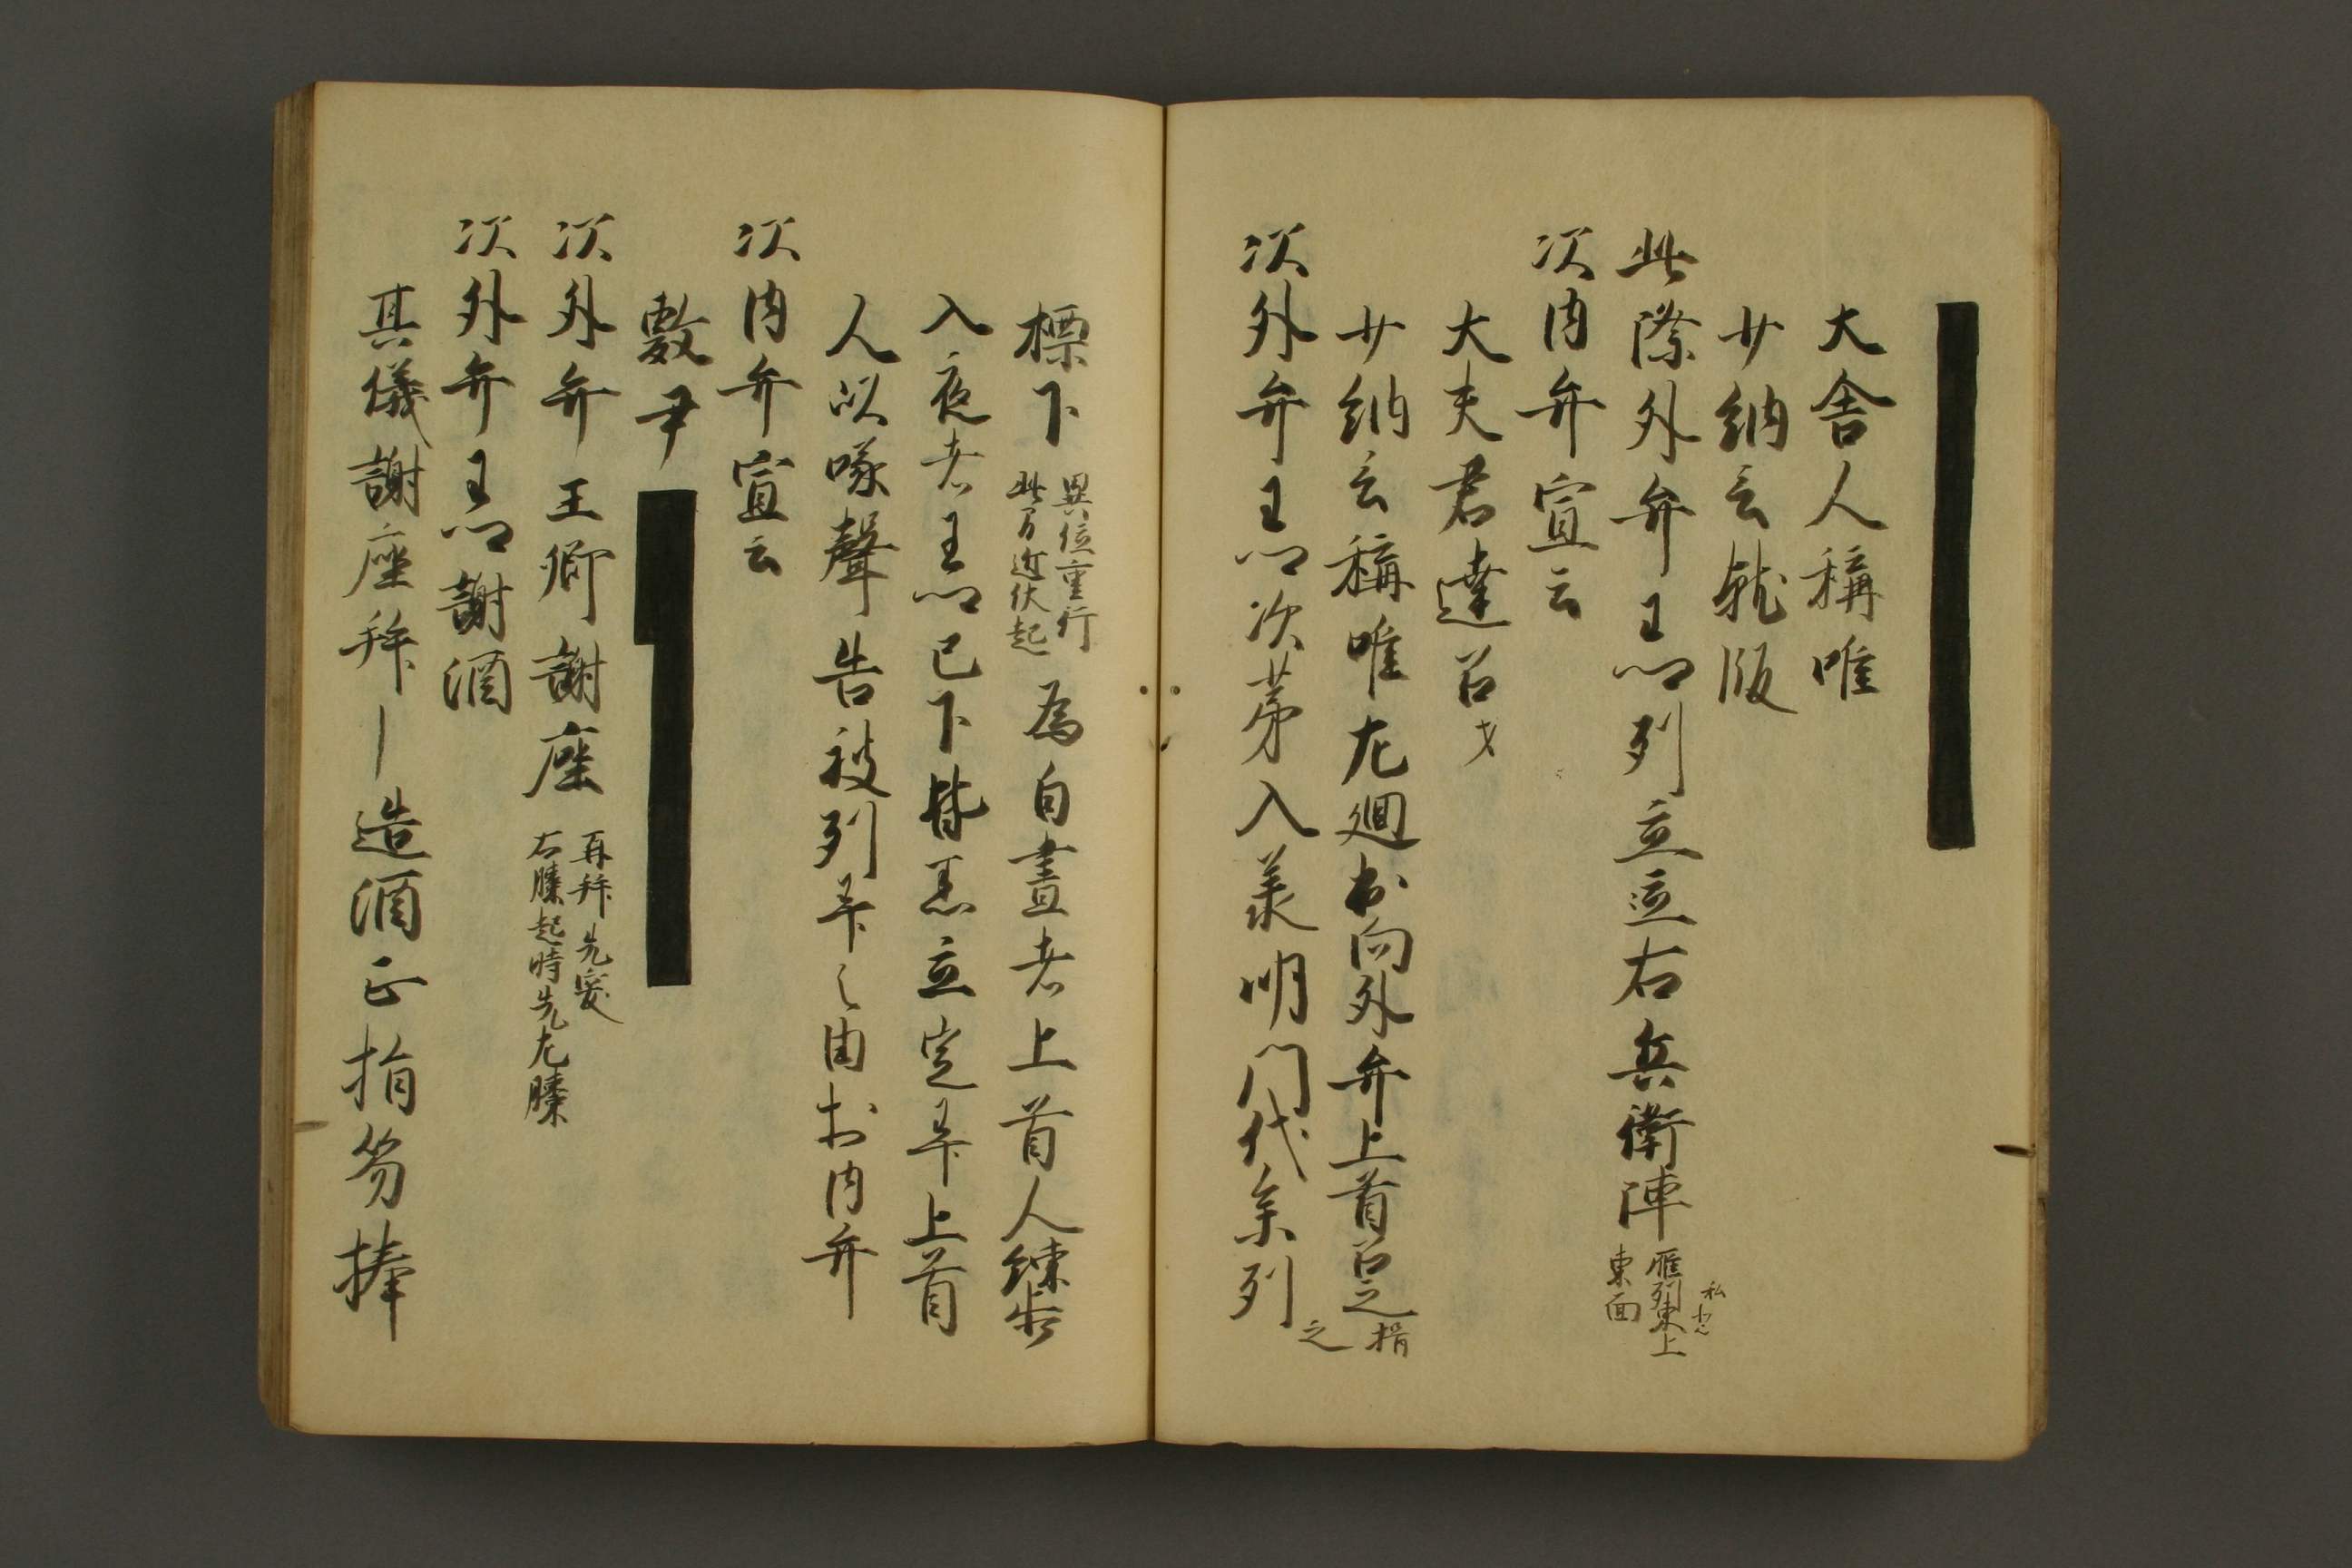 大舎人稱唯
少納言就版
此際外弁王卿列立立右兵衛陣
雁列東上
東面
次内弁宣云
大夫君達召
少納言稱唯左廻出向外弁上首召之
揖之
次外弁王卿次第入承明門代参列
標下
異位重行
此間近伏起
為白晝者上首人練歩
入夜者王卿已下皆悉立定畢上首
人以喙聲告被列畢之由於内弁
次内弁宣云
敷尹
次外弁王卿謝座
再拜先突
右膝起時先左膝
次外弁王卿謝酒
其儀謝座拜｜造酒正揖笏捧